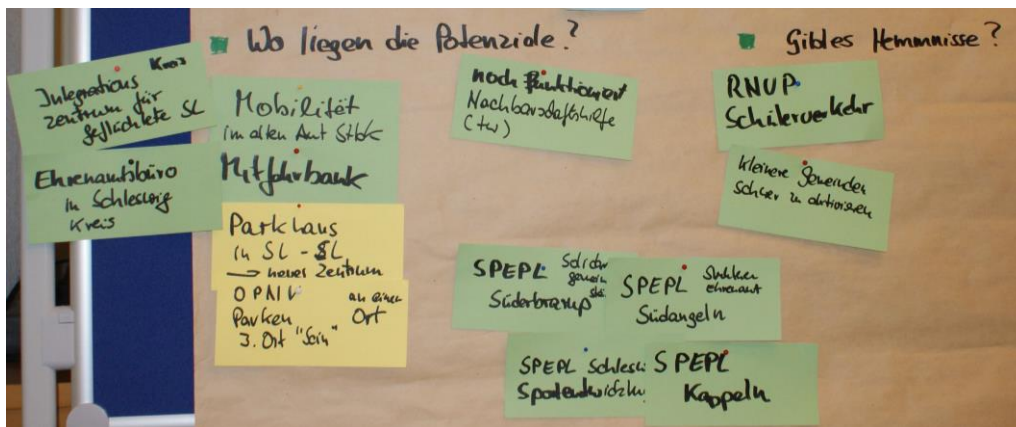 Wo liegen die Potenziale?
Gibt es Hemmnisse?
Integrations Kreis
zentrum für
geflichtete SL
Ehrenamtsbüro
in Schleswig
Kreis
Mobilität
im alten Amt Stbk
Mitfahrbank
Parkhaus
in SL - SL
→ neues Zentrum
OPNV an einen
Parken Ort
3. Ort "Sein"
noch funktioniert
Nachbarschaftshilfe
(tw)
RNVP
Schülerverkehr
kleinere Gemeinden
schwer zu aktivieren
SPEPL
Süderbrarup
SPEPL Stärken
ehrenamt
Südangeln
SPEPL
SPEPL
Kappeln